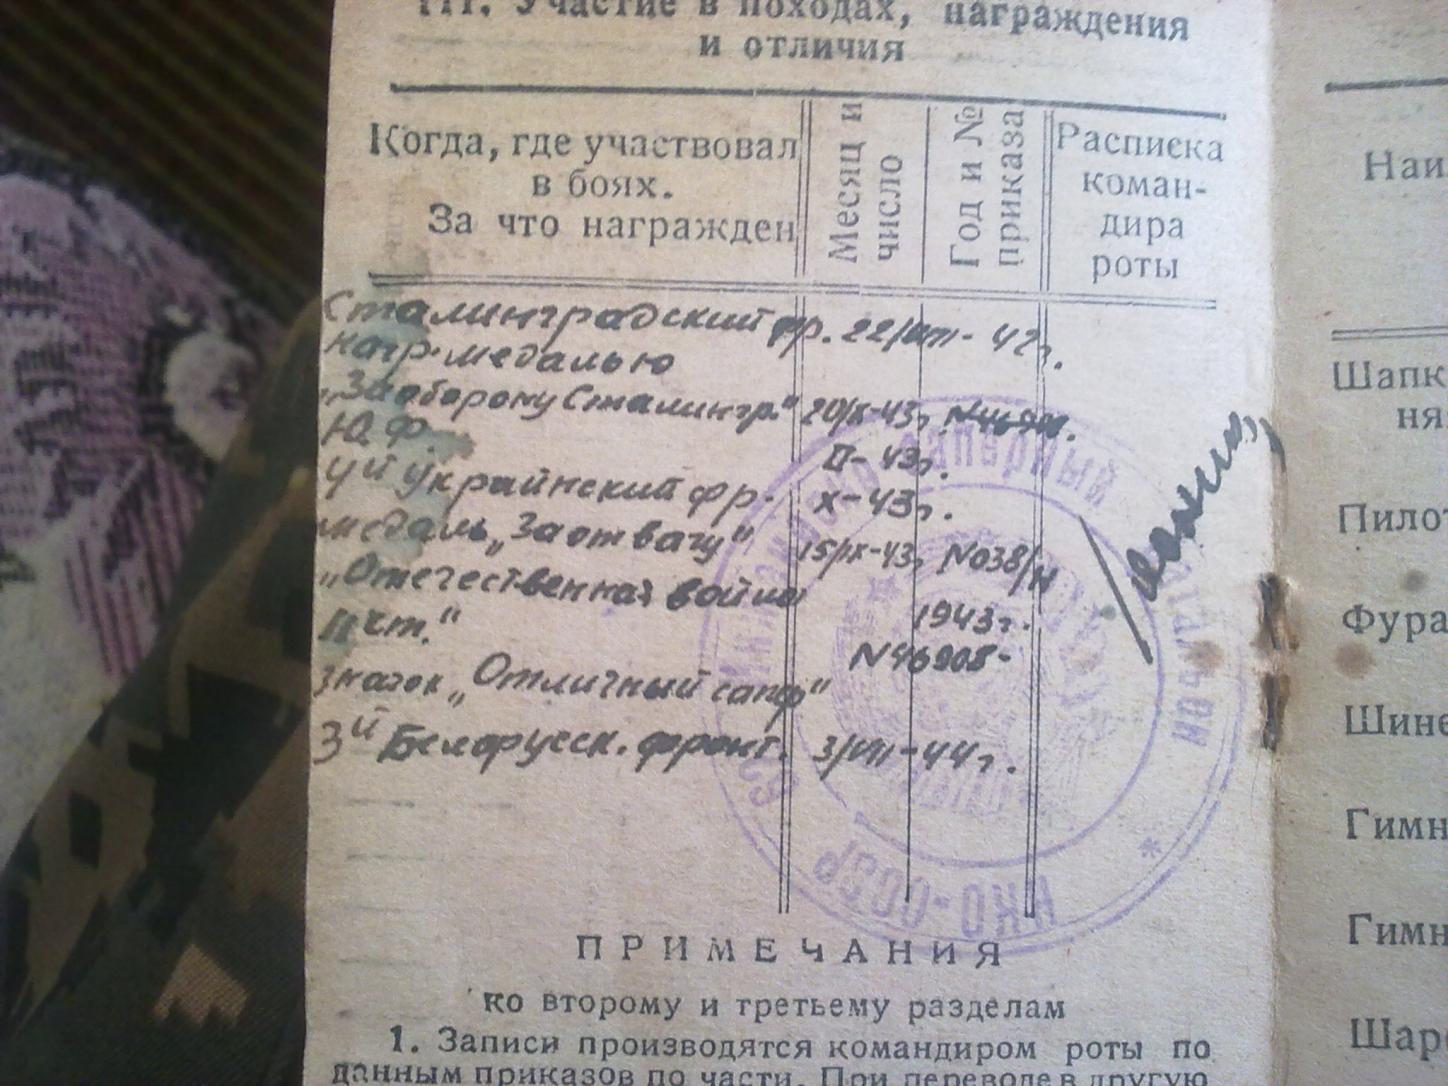 III. Участие в походах, награждения
и отличия
Когда, где участвовал
в боях.
За что награжден
Месяц и
число
Год и №
приказа
Расписка
коман-
дира
роты
Сталинградский фр. 22/VIII - 42г.
нагр. медалью
„За оборону Сталингр." 20/X-43г. N46908.
Ю.Ф. II-43г.
4й Украйнский фр. X-43г.
медаль „За отвагу" 15/IX-43г N038/н
„Отечественная война
II ст." 1943г.
N46908-
значок „Отличный сапер"
3й Белорусск. фронт. 3/VII-44г.
саперный
НКО-СССР
ПРИМЕЧАНИЯ
ко второму и третьему разделам
1. Записи производятся командиром роты по
данным приказов по части. При переводе в другую
Наи
Шапк
ня
Пило
Фура
Шине
Гимн
Гимн
Шаро